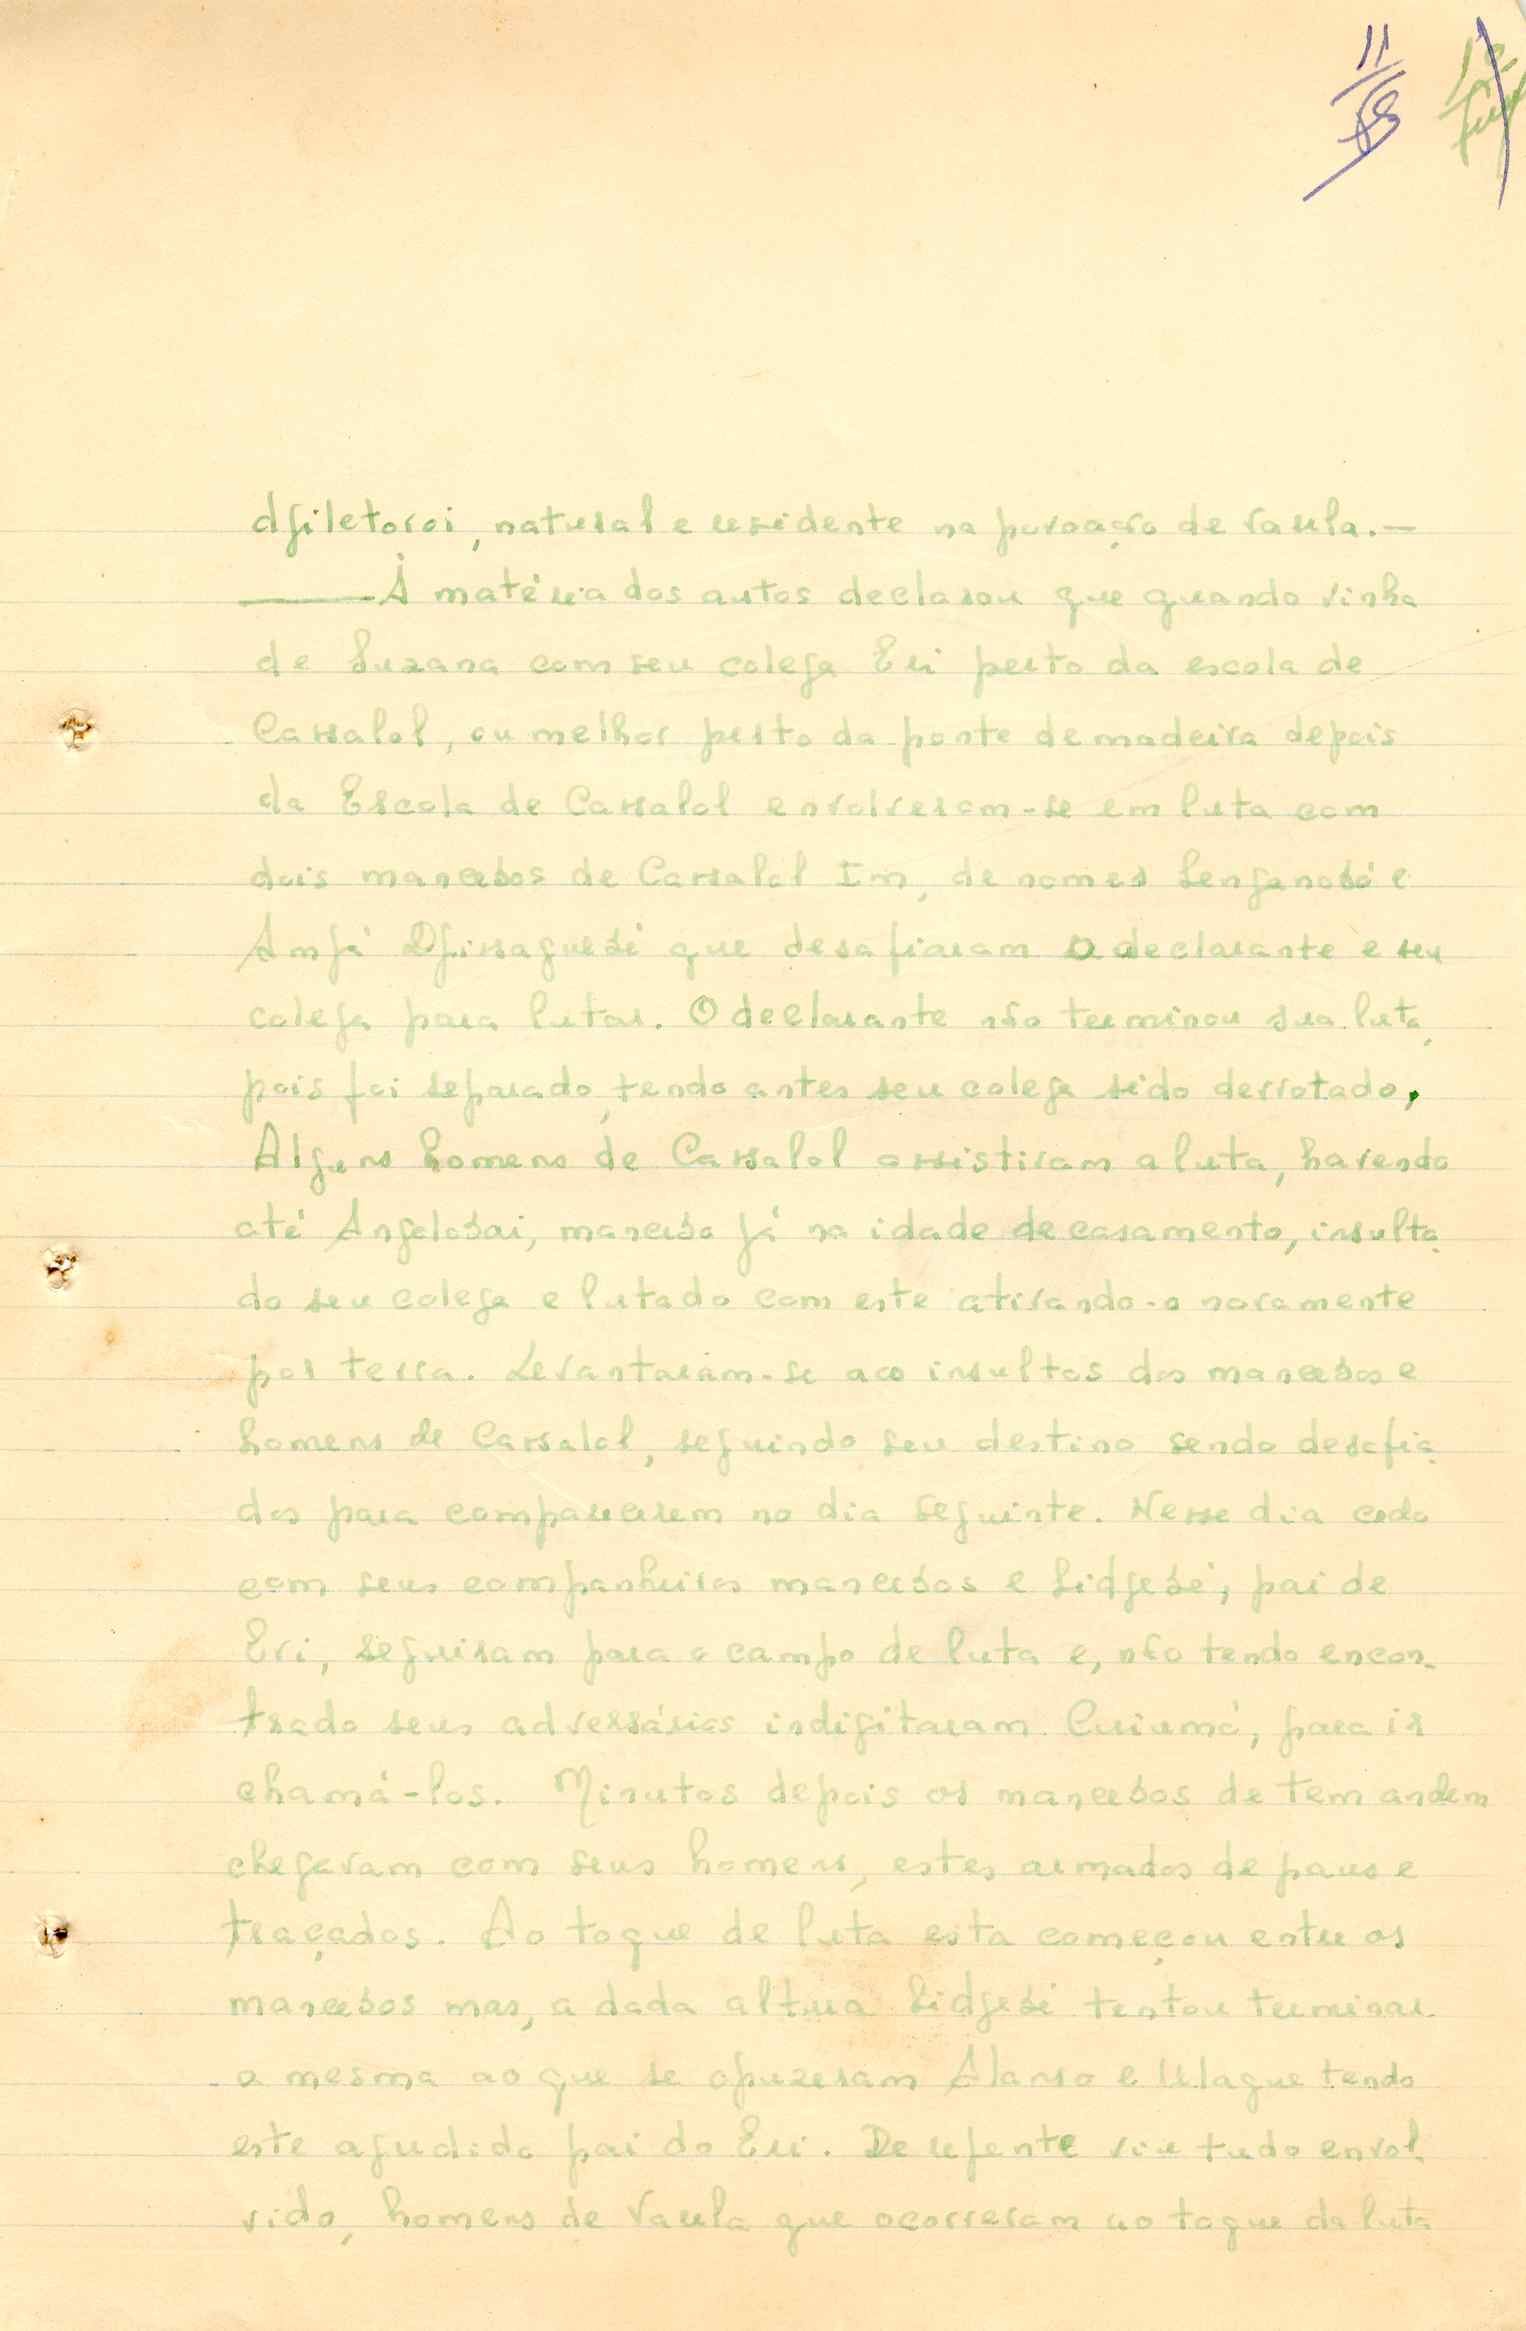 11
djiletoroi, natural e residente na povoação de Varela.—
—— Á matéria dos autos declarou que quando vinha
de Suzana com seu colega Eri perto da escola de
Cassalol, ou melhor perto da ponte de madeira depois
da Escola de Cassalol envolveram-se em luta com
dois mancebos de Cassalol Im, de nomes Senganobó e
Anjá Djissaguebé que desafiaram o declarante e seu
colega para lutar. O declarante não terminou sua luta,
pois foi separado, tendo antes seu colega sido derrotado,
Alguns homens de Cassalol assistiram a luta, havendo
até Angolobai, mancebo já na idade de casamento, insulta
do seu colega e lutado com este atirando-o novamente
por terra. Levantaram-se aos insultos dos mancebos e
homens de Cassalol, seguindo seu destino sendo desafia
dos para comparecerem no dia seguinte. Nesse dia cedo
com seus companheiros mancebos e Sidjebé, pai de
Eri, seguiram para o campo de luta e, não tendo encon-
trado seus adversários indigitaram Curiumó, para ir
chamá-los. Minutos depois os mancebos de tem andem
chegavam com seus homens, estes armados de paus e
traçados. Ao toque de luta esta começou entre os
mancebos mas, a dada altura Sidjebé tentou terminar
a mesma ao que se opuzeram Alanso e Ulague tendo
este agudido pai do Eri. De repente viu tudo envol
vido, homens de Varela que ocorreram ao toque da luta